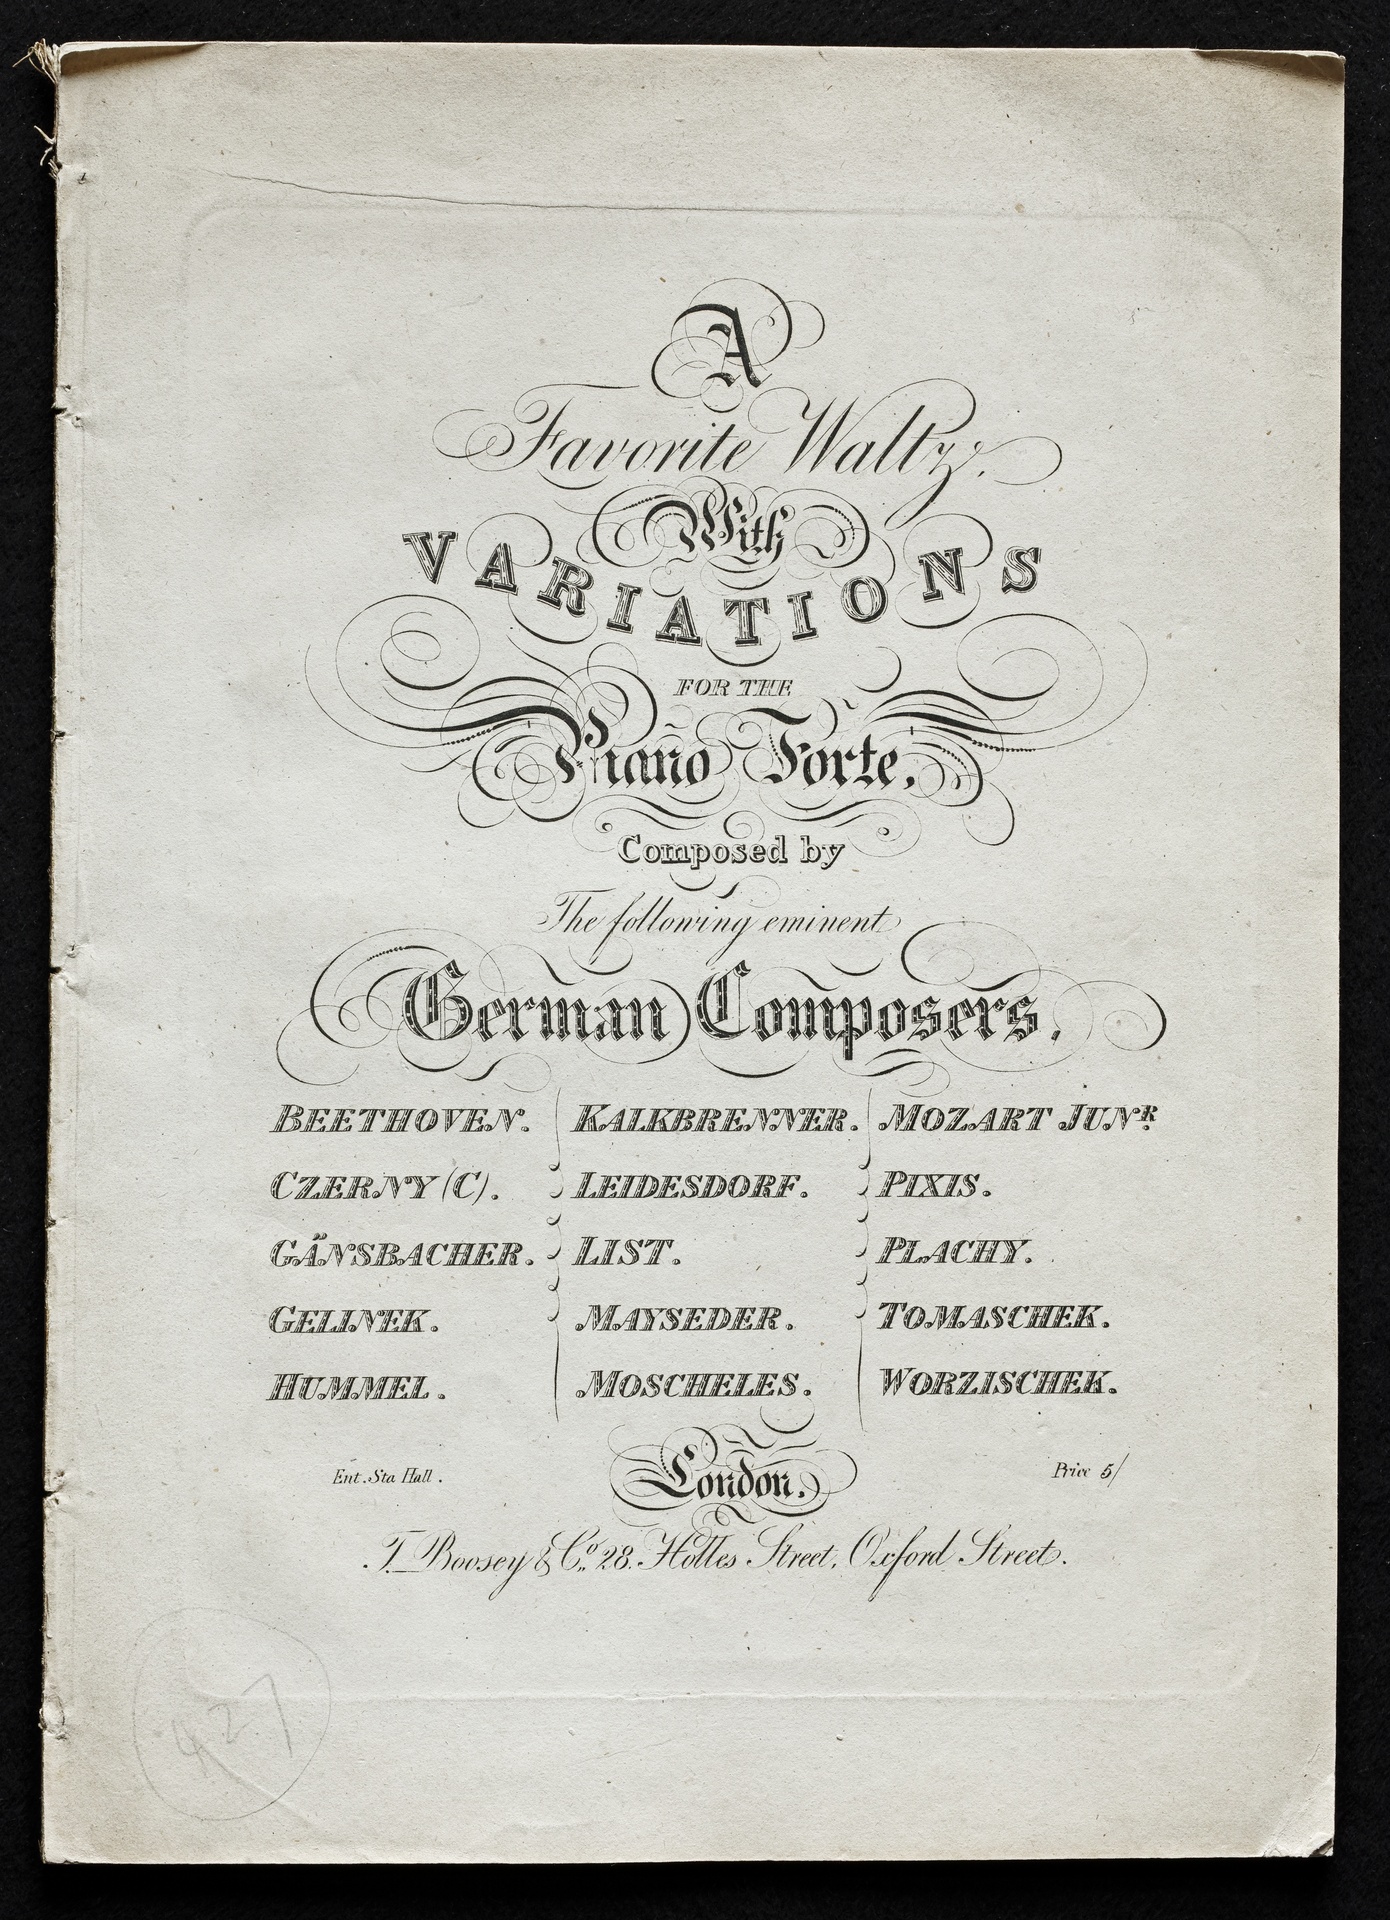 A
Favorite Waltz.
With
VARIATIONS
FOR THE
Piano Forte,
Composed by
The following eminent
German Composers.
BEETHOVEN. KALKBRENNER. MOZART JUNR.
CZERNY (C). LEIDESDORF. PIXIS.
GÄNSBACHER. LIST. PLACHY.
GELINEK. MAYSEDER. TOMASCHEK.
HUMMEL. MOSCHELES. WORZISCHEK.
Ent. Sta Hall. London. Price 5/
T. Boosey & Co. 28. Holles Street, Oxford Street.
427